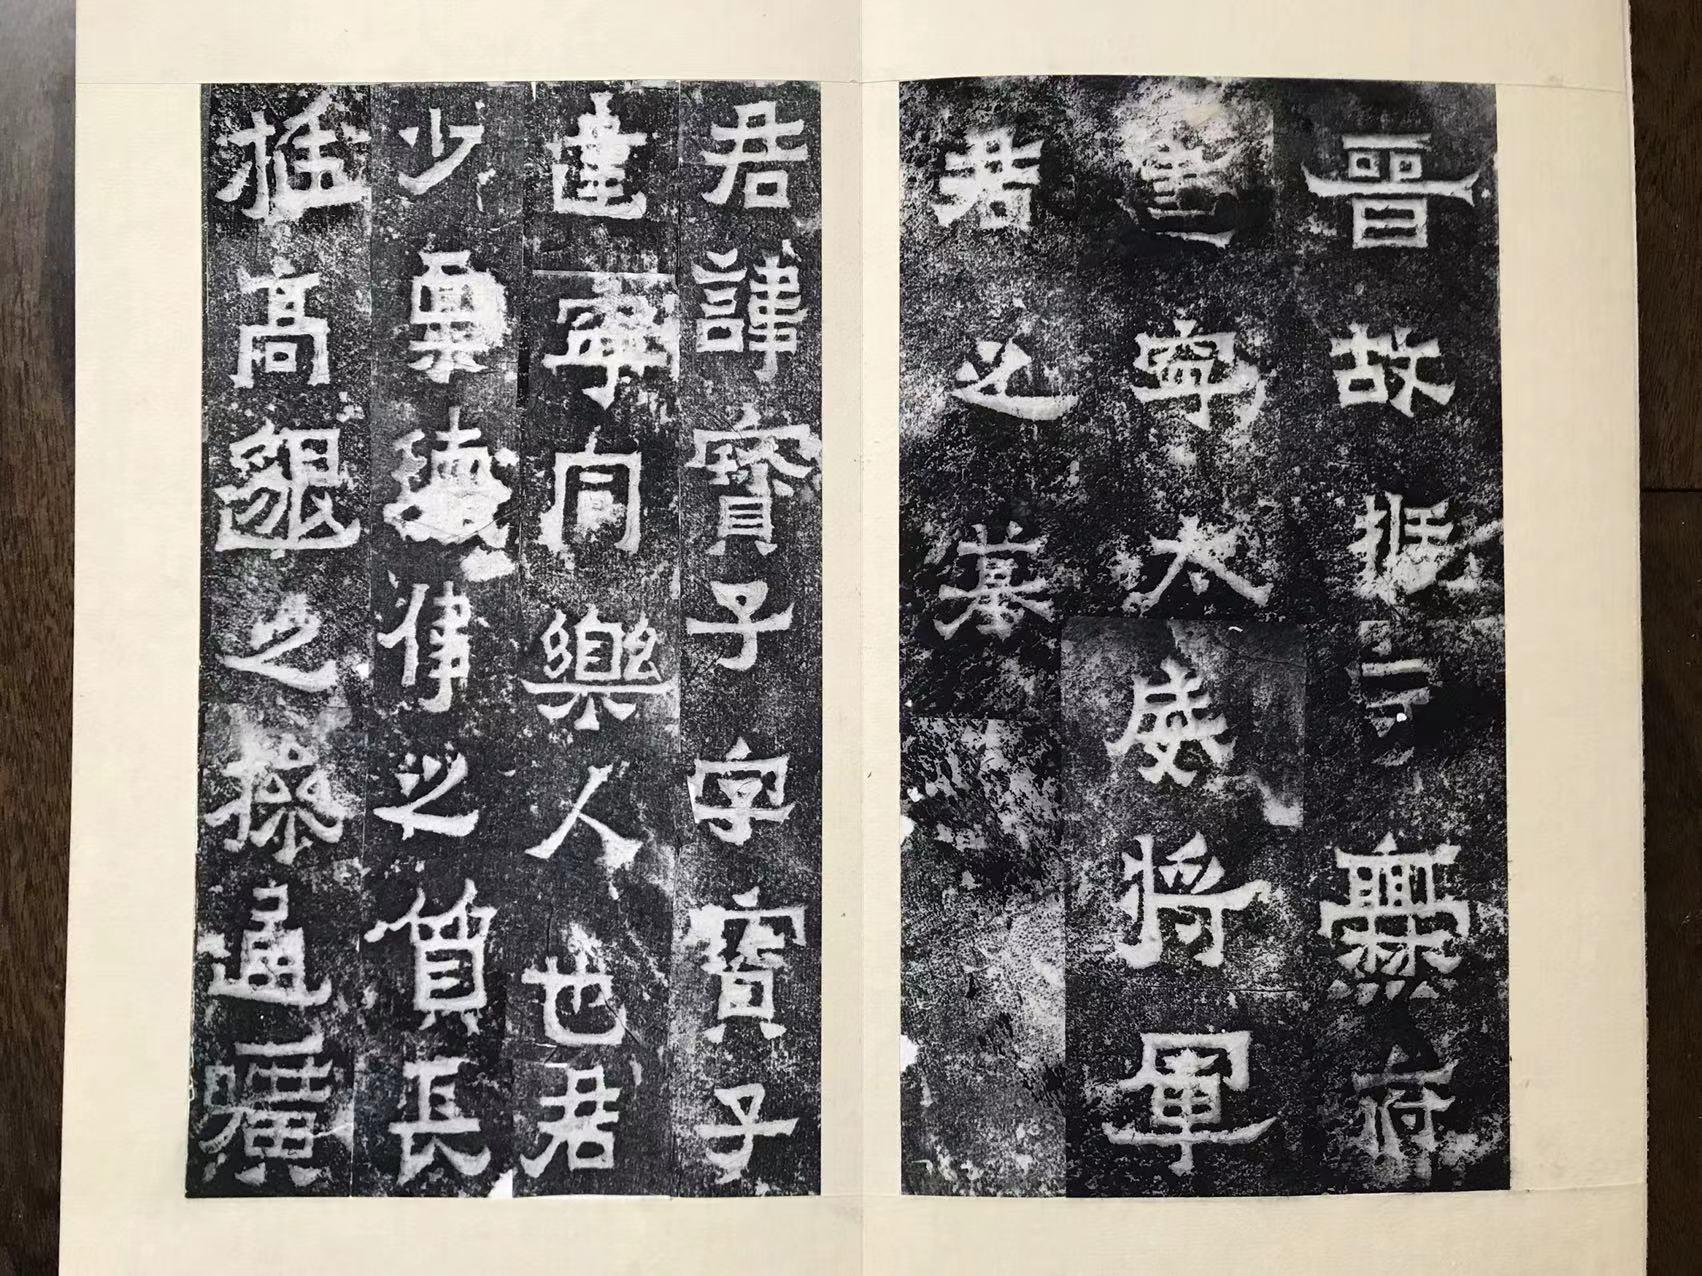 晉故振守爨府
建寧太威將軍
君之墓
君諱寶子字寶子
建寧同樂人也君
少稟瓌偉之質長
挺高邈之操通曠